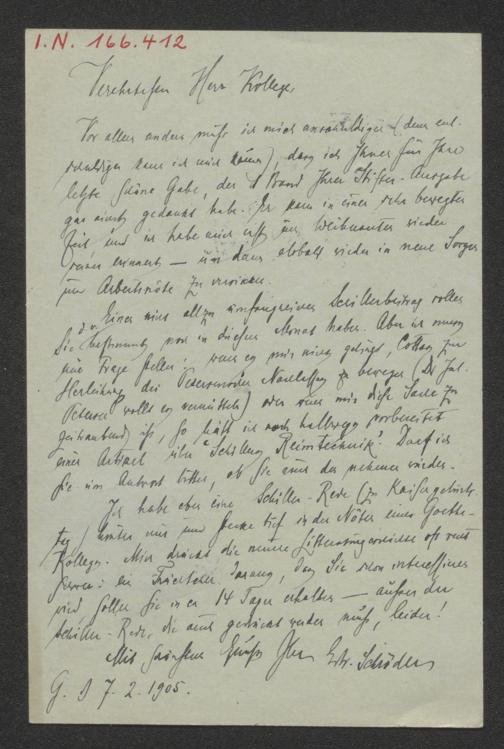 I.N. 166.412
Verehrtester Herr Kollege,
Vor allem andern muß ich mich entschuldigen (denn ent-
schuldigen kann ich mich), daß ich Ihnen für Ihre
letzte schöne Gabe, der Band Ihrer Stifter-Ausgabe
gar nicht gedankt habe. Er kam in einer sehr bewegten
Zeit und ich habe mich erst zu Weihnachten wieder
daran erinnert — um dann alsbald wieder in neue Sorgen
und Arbeitsnöte zu
Einen nicht allzu umfangreichen Schillerbeitrag sollen
Sie bestimmt noch in diesem Monat haben. Aber ich muss
eine Frage stellen: wenn es mir nicht gelingt, Cottas zur
Herleihung des Nachlasses zu bewegen (Dr Jul.
Petersen wollte es vermitteln) oder wenn mir diese Sache zu
zeitraubend ist, so hätte ich noch halbwegs vorbereitet
einen Artikel über "Schillers Reimtechnik". Darf ich
Sie um Antwort bitten, ob Sie auch den nehmen würden.
Ich habe eben eine Schiller-Rede (zu Kaisergeburts-
tag) hinter mir und stecke tief in den Nöten eines Goethe-
Kollegs. Mich drückt die neuere Litteraturgeschichte oft recht
schwer: ein Daß Sie interessieren
wird sollen Sie in ca 14 Tagen erhalten — außer der
Schiller-Rede, die auch gedruckt werden muß, leider!
Mit schönstem Gruß Ihr Edw. Schröder
G. d 7. 2. 1905.